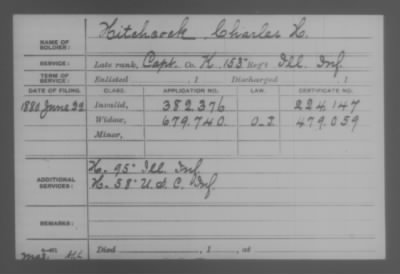 NAME OF SOLDIER: Hitchcock Charles H.
SERVICE: Late rank, Capt. Co. K, 153" Reg't Ill. Inf.
TERM OF SERVICE: Enlisted , 1 Discharged , 1
DATE OF FILING. CLASS. APPLICATION NO. LAW. CERTIFICATE NO.
1880 June 22 Invalid, 382.376 224,147
Widow, 679.740 O.L. 479.059
Minor,
ADDITIONAL SERVICES: K. 95" Ill. Inf.
K. 58" U.S.C. Inf
REMARKS:
Died , 1 , at